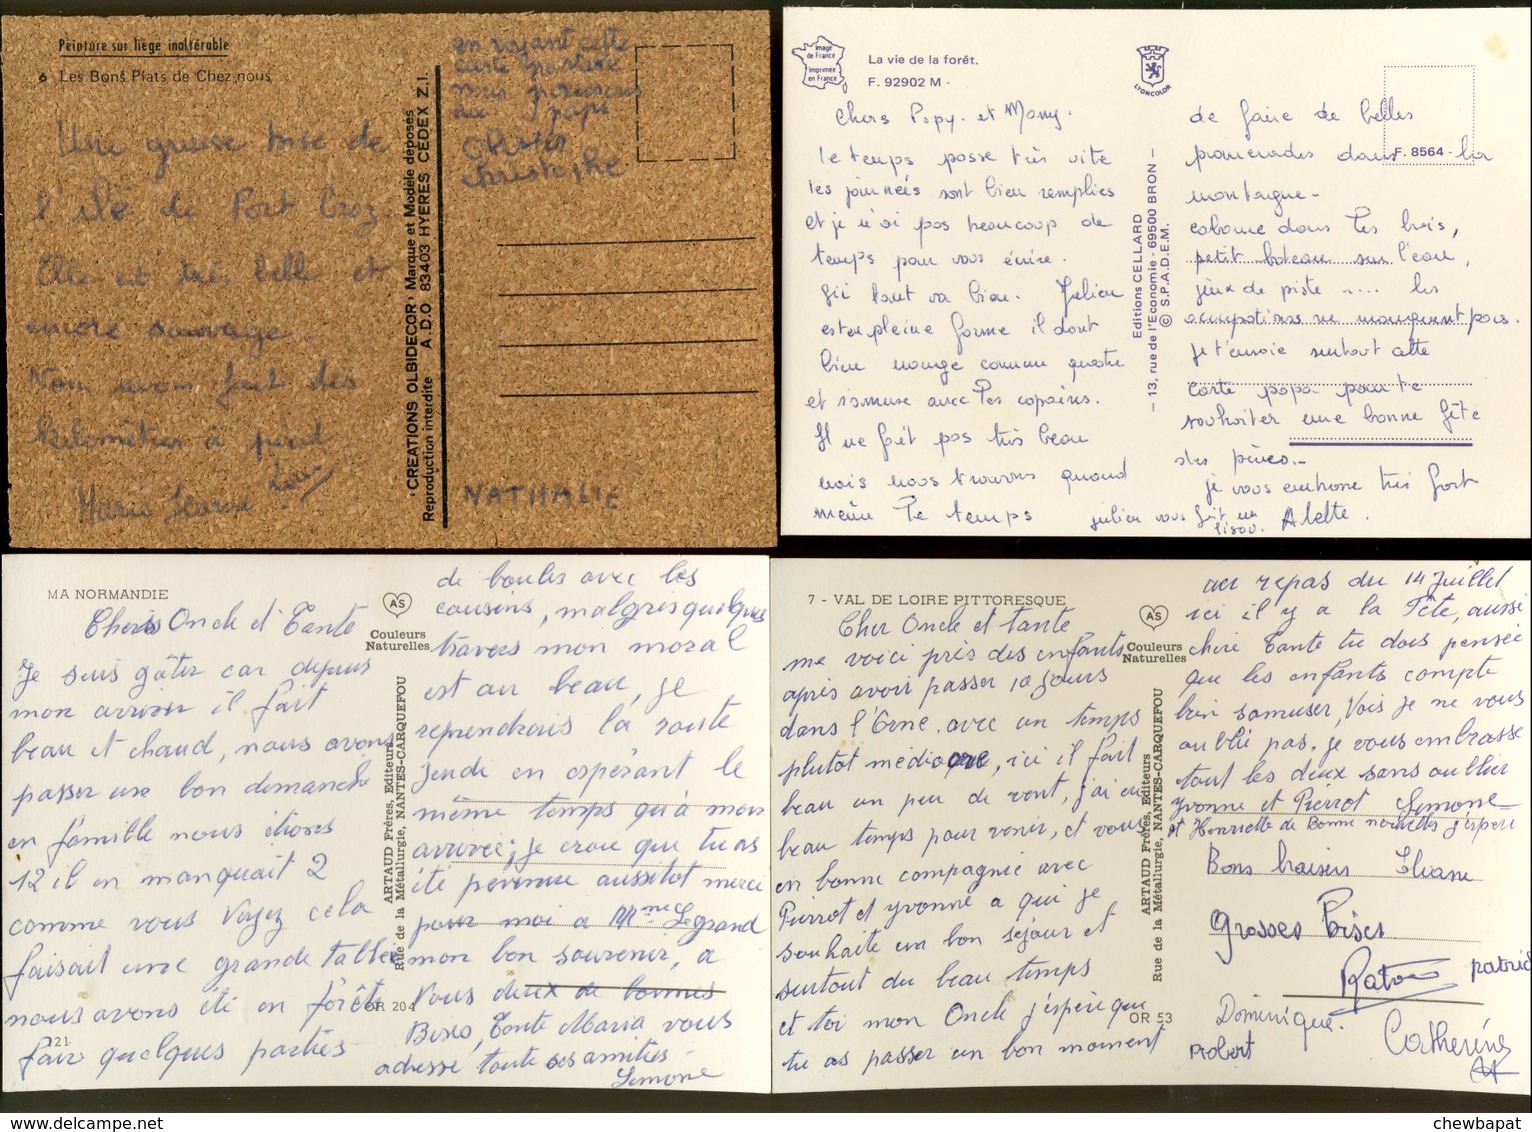 Peinture sur liège inaltérable
6 Les Bons Plats de Chez nous
Une grosse bise de
l'île de Port Croz.
Elle est très belle et
encore sauvage.
Nous avons fait des
kilomètres à pied.
Marie Jeanne
'CREATIONS OLBIDECOR' Marque et Modèle déposés
Reproduction interdite A.D.O 83403 HYERES CEDEX Z.I.
en voyant cette
carte postale
nous pensons
au papi
Christophe
NATHALIE
Image de France
Imprimée en France
La vie de la forêt.
F. 92902 M -
LYONCOLOR
F. 8564 -
Chers Papy. et Mamy.
le temps passe très vite
les journées sont bien remplies
et je n'ai pas beaucoup de
temps pour vous écrire.
Ici tout va bien. Julien
est en pleine forme il doit
bien mange comme quatre
et s'amuse avec les copains.
Il ne fait pas très beau
mais nous trouvons quand
même le temps
de faire de belles
promenades dans la
montagne -
cabane dans les bois,
petit bateau sur l'eau,
jeux de piste ..... les
occupations ne manquent pas.
je t'envoie surtout cette
carte papa pour te
souhaiter une bonne fête
des pères.-
je vous embrasse très fort
Julien vous fait un bisou. Arlette.
Editions CELLARD
- 13, rue de l'Economie - 69500 BRON -
© S.P.A.D.E.M.
MA NORMANDIE
AS
Couleurs
Naturelles
Chers Oncle et Tante
Je suis gâter car depuis
mon arriver il fait
beau et chaud, nous avons
passer une bon dimanche
en famille nous étions
12 il en manquait 2
comme vous voyez cela
faisait une grande tablée
nous avons été en forêt
fair quelques parties
21
OR 204
ARTAUD Frères, Editeurs
Rue de la Métallurgie, NANTES-CARQUEFOU
de boules avec les
cousins, malgrés quelques
travers mon moral
est au beau, je
reprendrais la route
jeudi en espérant le
même temps qu'à mon
arrivée; je crois que tu as
été prévenue aussitot merci
pour moi a Mme Legrand
mon bon souvenir, a
vous deux de bonnes
Bises, Tante Maria vous
adresse toute ses amitiés -
Simone
7 - VAL DE LOIRE PITTORESQUE
AS
Couleurs
Naturelles
Cher Oncle et tante
me voici près des enfants
après avoir passer 10 jours
dans l'Orne, avec un temps
plutot médiocre, ici il fait
beau un peu de vent, j'ai eu
beau temps pour venir, et vous
en bonne compagnie avec
Pierrot et yvonne a qui je
souhaite un bon séjour et
surtout du beau temps
et toi mon Oncle j'espère que
tu as passer un bon moment
OR 53
ARTAUD Frères, Editeurs
Rue de la Métallurgie, NANTES-CARQUEFOU
au repas du 14 Juillet
ici il y a la Fête, aussi
chère Tante tu dois pensée
que les enfants compte
bien s'amuser, Vois je ne vous
oublie pas. je vous embrasse
tout les deux sans oublier
yvonne et Pierrot Simone
et Henriette de Bonne nouvelles j'espère
Bons baisers Liliane
Grosses bises
patrick
Dominique.
Robert
Catherine
chewbapat